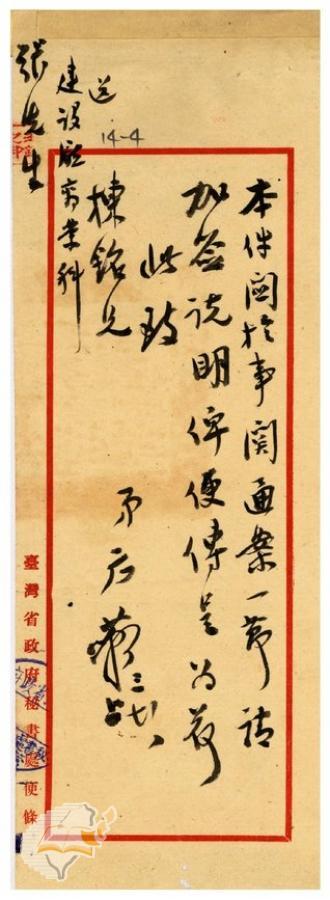 本件關於事關通案一節請
加簽說明俾便傳呈為荷
此致
棟銘兄
弟
蘇
三廿八
送
建設廳商業科
張先生
14-4
臺灣省政府秘書處便條